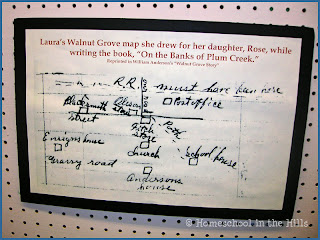 Laura's Walnut Grove map she drew for her daughter, Rose, while
writing the book, "On the Banks of Plum Creek."
Reprinted in William Anderson's "Walnut Grove Story"
R.R. must have been here
Blacksmith Olesons Store Post office
street
Fitch Store
Ensigns house church School house
Quarry road
Andersons
house
© Homeschool in the Hills